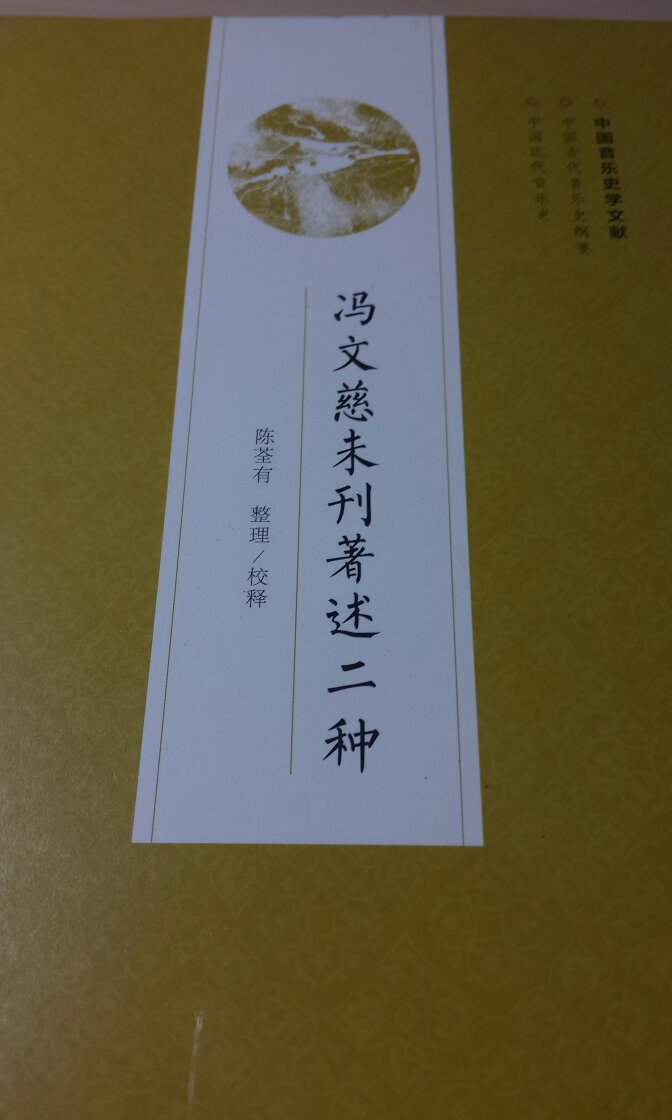 中国音乐史学文献
中国古代音乐史纲要
中国近代音乐史
冯文慈未刊著述二种
陈荃有 整理/校释